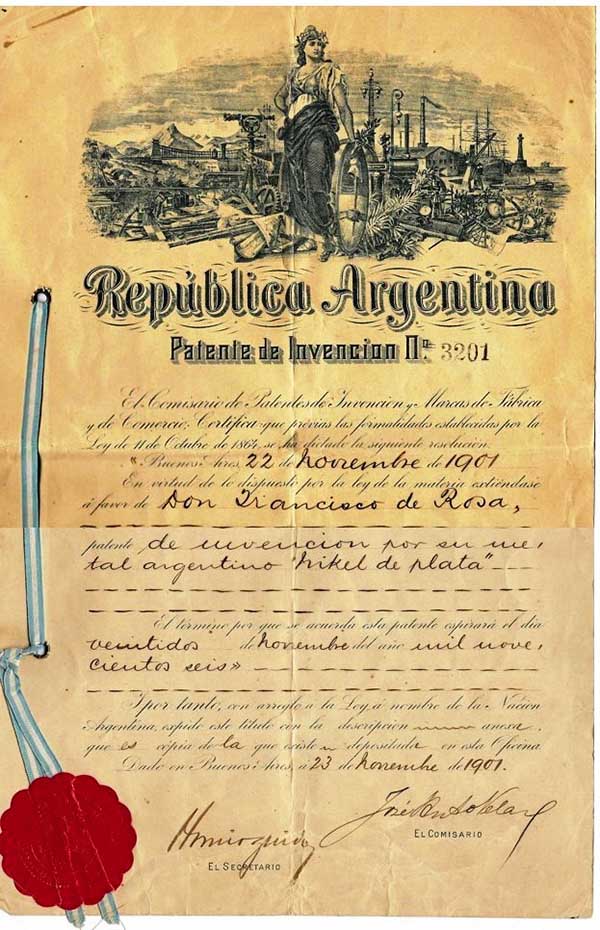 República Argentina
Patente de Invencion No. 3201
El Comisario de Patentes de Invención y Marcas de Fábrica
y de Comercio, Certifica que previas las formalidades establecidas por la
Ley de 11 de Octubre de 1864, se ha dictado la siguiente resolución.
"Buenos Aires, 22 de noviembre de 1901
En virtud de lo dispuesto por la ley de la materia extiéndase
á favor de Don Francisco de Rosa,
patente de invencion por su me-
tal argentino "nikel de plata"
El término por que se acuerda esta patente espirará el día
veintidos de noviembre del año mil nove-
cientos seis»
Y por tanto, con arreglo a la Ley, á nombre de la Nación
Argentina, expido este título con la descripción anexa,
que es cópia de la que existe depositada en esta Oficina
Dado en Buenos Aires, á 23 de noviembre de 1901.
EL COMISARIO
EL SECRETARIO